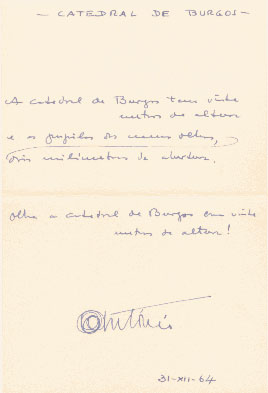 - CATEDRAL DE BURGOS -
A catedral de Burgos tem vinte
metros de altura
e as pupilas dos meus olhos,
dois milímetros de abertura.
Olha a catedral de Burgos com vinte
metros de altura!
António
31-XII-64